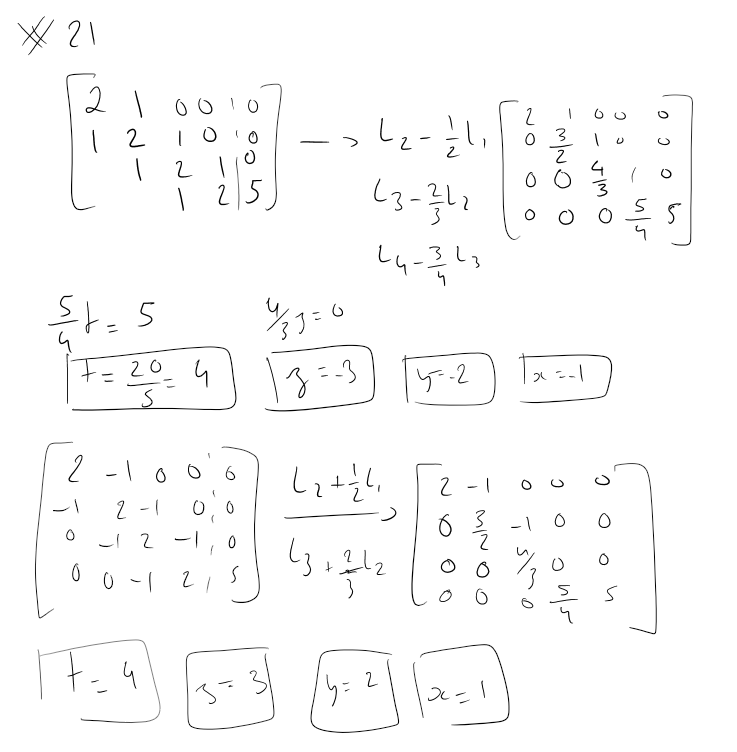 ※ 21
2 1 0 0 | 0
1 2 1 0 | 0
1 2 1 | 0
1 2 | 5
→ L₂ - 1/2 L₁
L₃ - 2/3 L₂
L₄ - 3/4 L₃
2 1 0 0 0
0 3/2 1 0 0
0 0 4/3 1 0
0 0 0 5/4 5
5/4 t = 5
4/3 z = 0
t = 20/5 = 4
z = -3
y = -2
x = -1
2 -1 0 0 | 0
-1 2 -1 0 | 0
0 -1 2 -1 | 0
0 0 -1 2 | 5
L₂ + 1/2 L₁ →
L₃ + 2/3 L₂
2 -1 0 0 0
0 3/2 -1 0 0
0 0 4/3 0 0
0 0 0 5/4 5
t = 4
z = 3
y = 2
x = 1